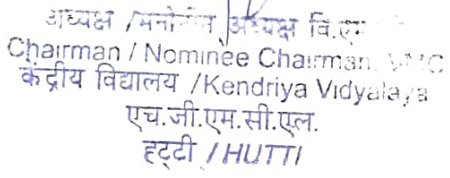 अध्यक्ष /मनोनीत अध्यक्ष वि.एम
Chairman / Nominee Chairman, VMC
केंद्रीय विद्यालय /Kendriya Vidyalaya
एच.जी.एम.सी.एल.
हट्टी / HUTTI